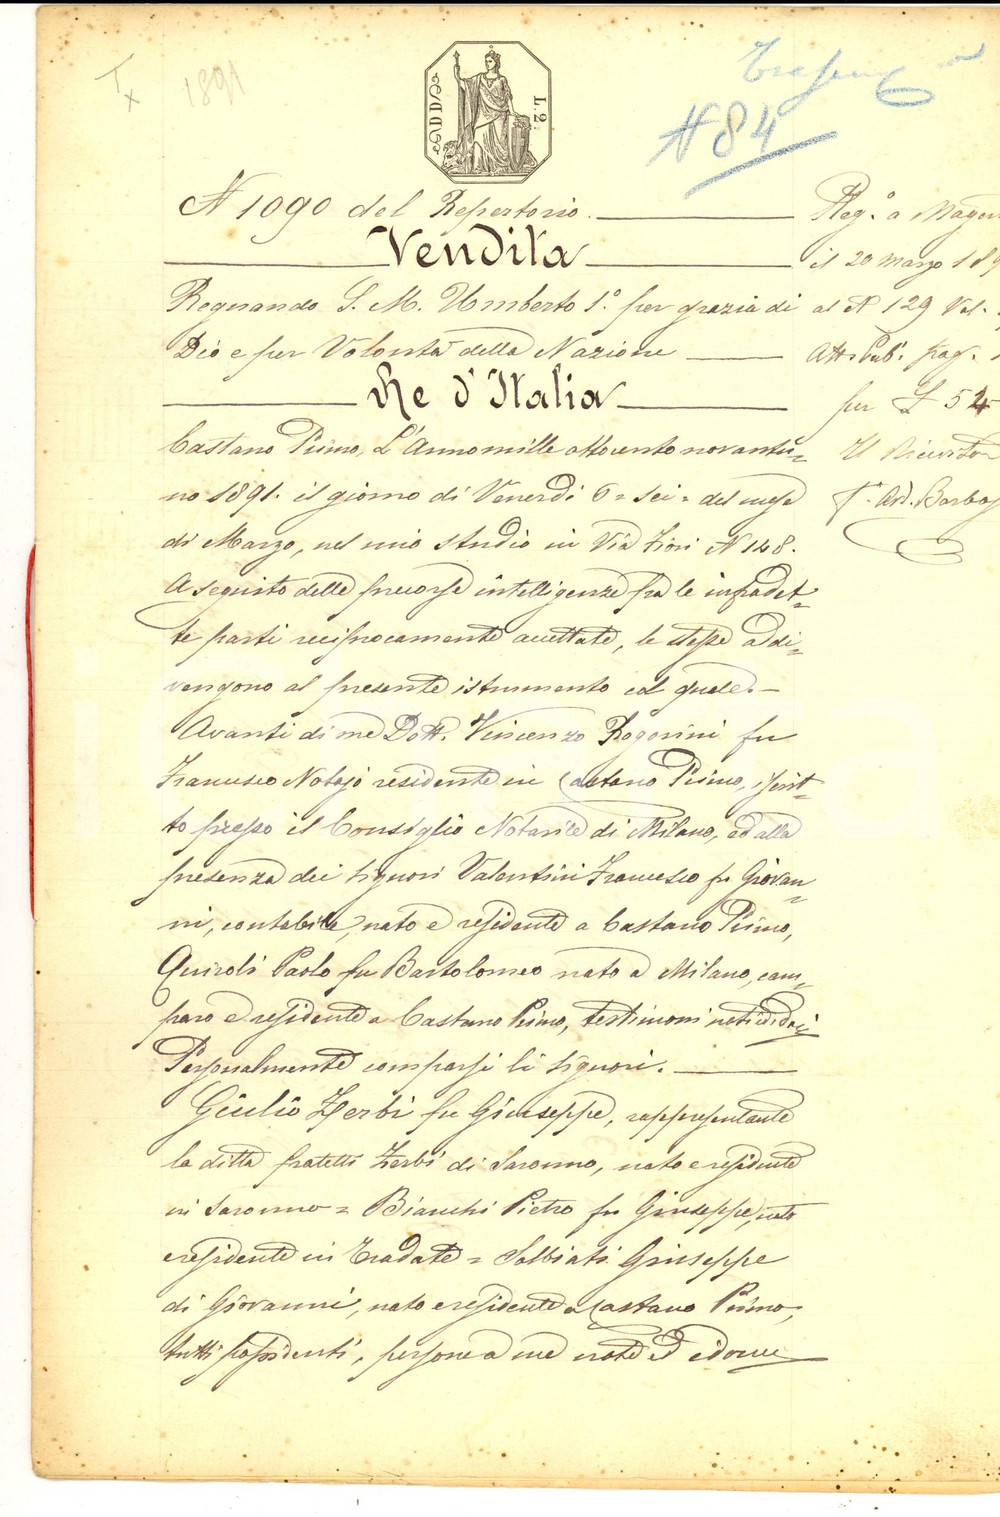 1891
L. 2.
N 84
N 1090 del Repertorio.
Vendita
Regnando S. M. Umberto 1.° per grazia di
Dio e per Volontà della Nazione
Re d'Italia
Castano Primo, L'Anno mille ottocento novantu=
no 1891. il giorno di Venerdì 6 = sei = del mese
di Marzo, nel mio studio in Via Fiori N 148.
A seguito delle precorse intelligenze fra le infradet=
te parti reciprocamente accettate, le stesse addi=
vengono al presente istrumento col quale. -
Avanti di me Dott. Vincenzo Rogorini fu
Francesco Notajo residente in Castano Primo, iscrit=
to presso il Consiglio Notarile di Milano, ed alla
presenza dei signori Valentini Francesco fu Giovan=
ni, contabile, nato e residente a Castano Primo,
Quiroli Paolo fu Bartolomeo nato a Milano, cam=
paro e residente a Castano Primo, testimoni noti ed idonei
Personalmente comparsi li signori.
Giulio Zerbi fu Giuseppe, rappresentante
la ditta fratelli Zerbi di Saronno, nato e residente
in Saronno = Bianchi Pietro fu Giuseppe, nato
e residente in Tradate = Salbiati Giuseppe
di Giovanni, nato e residente a Castano Primo,
tutti possidenti, persone a me note ed idonee
Reg.° a Magen
il 20 marzo 189
al N 129 Vol.
Atti Pub. pag.
per £ 54
Il Ricevitor
F. Ard. Barbag